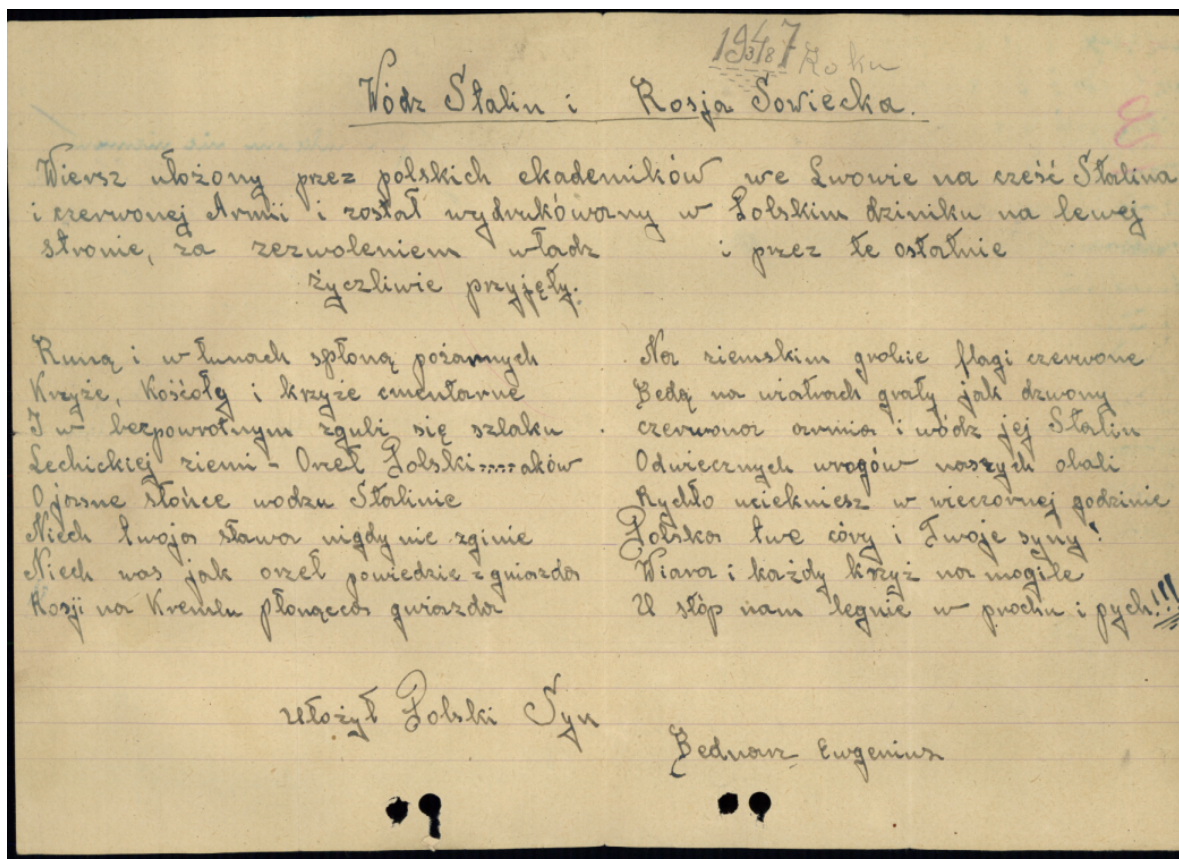 1947 Roku
Wódz Stalin i Rosja Sowiecka.
Wiersz ułożony przez polskich ekademików we Lwowie na cześć Stalina
i czerwonej Armii i został wydrukówany w Polskim dziniku na lewej
stronie, za zezwoleniem władz i przez te ostatnie
życzliwie przyjęty:
Runą i w łunach spłoną pożarnych
Krzyże, Kośćoły i krzyże cmentarne
I w bezpowrotnym zgubi się szlaku
Lechickiej ziemi - Orzeł Polski.....aków
O jasne słońce wodzu Stalinie
Niech twoja sława nigdy nie zginie
Niech nas jak orzeł powiedzie z gniazda
Rosji na Kremlu płonąca gwiazda
Na ziemskim grobie flagi czerwone
Będą na wiatrach grały jak dzwony
czerwona armia i wódz jej Stalin
Odwiecznych wrogów naszych obali
Rychło uciekniesz w wieczornej godzinie
Polska twe córy i Twoje syny!
Wiara i każdy krzyż na mogile
U stóp nam legnie w prochu i pych!!!
Ułożył Polski Syn
Bednarz Ewgeniusz